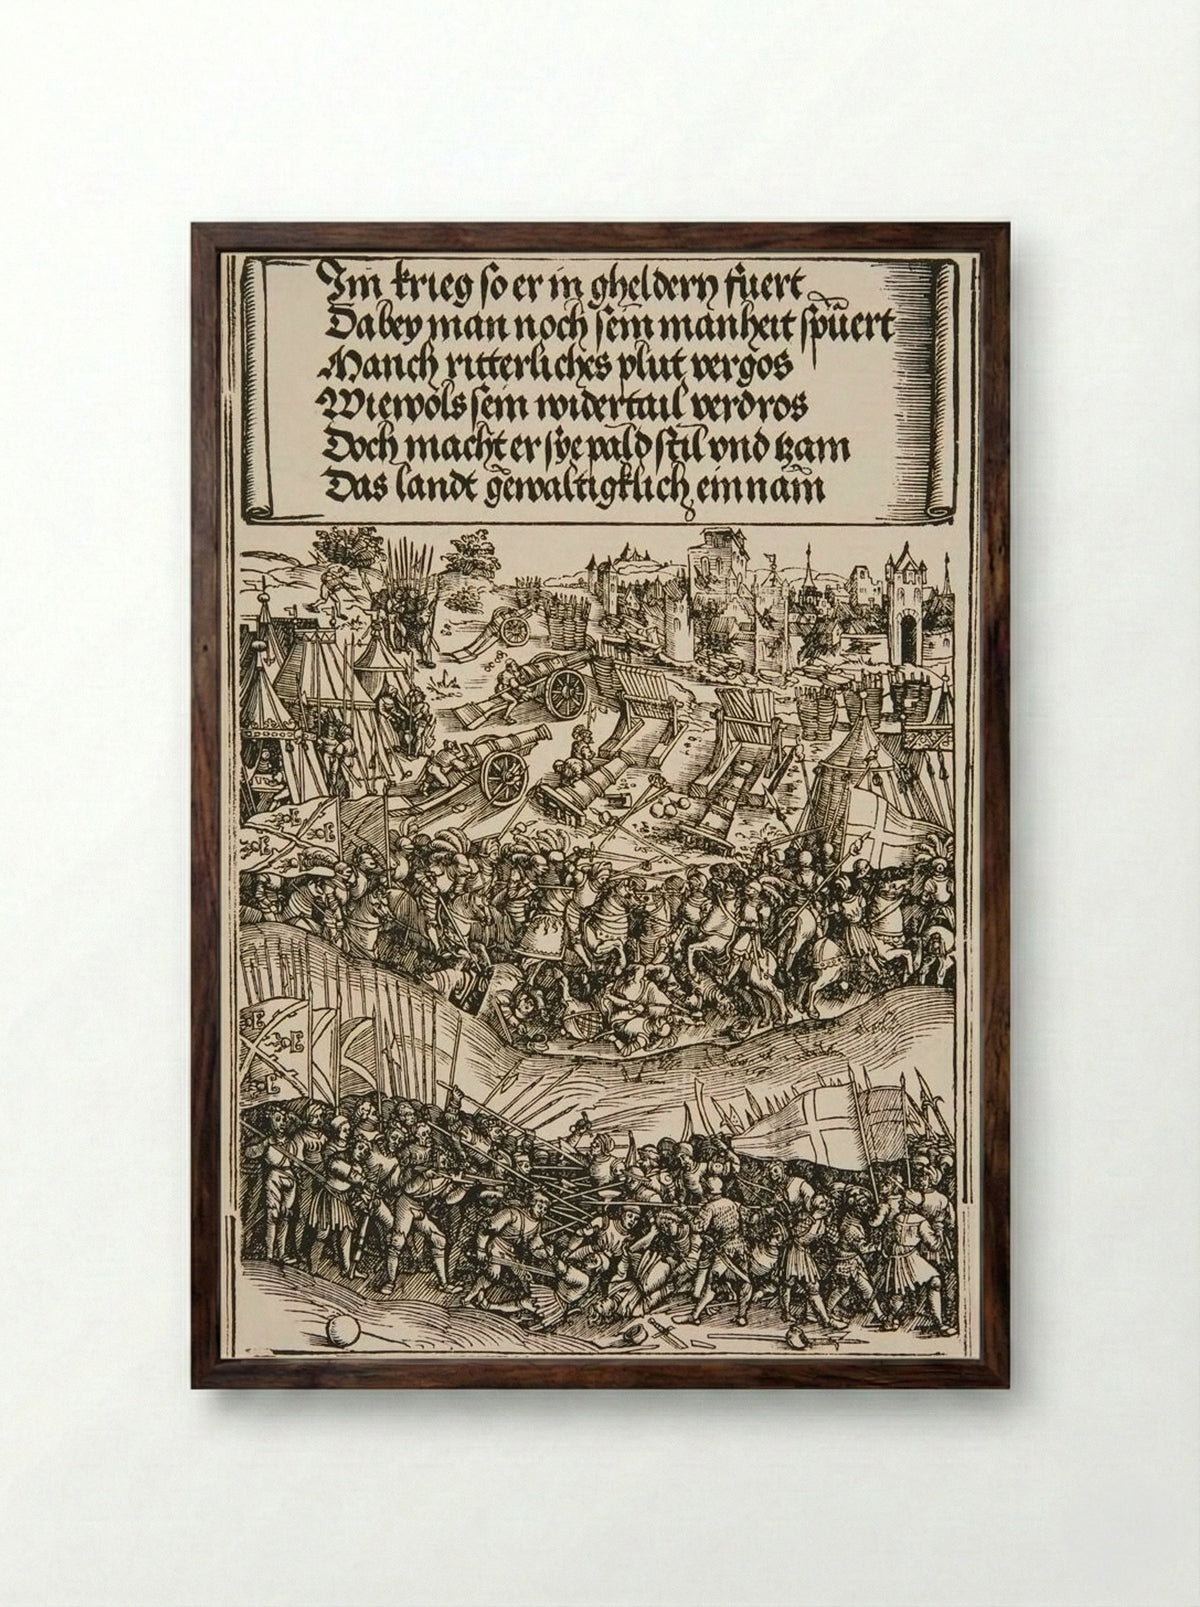 Im krieg so er in gheldern fuert
Dabey man noch sein manheit spuert
Manch ritterliches plut vergos
Wiewols sein widertail verdros
Doch macht er sye pald stil vnd tzam
Das landt gewaltigklich einnam